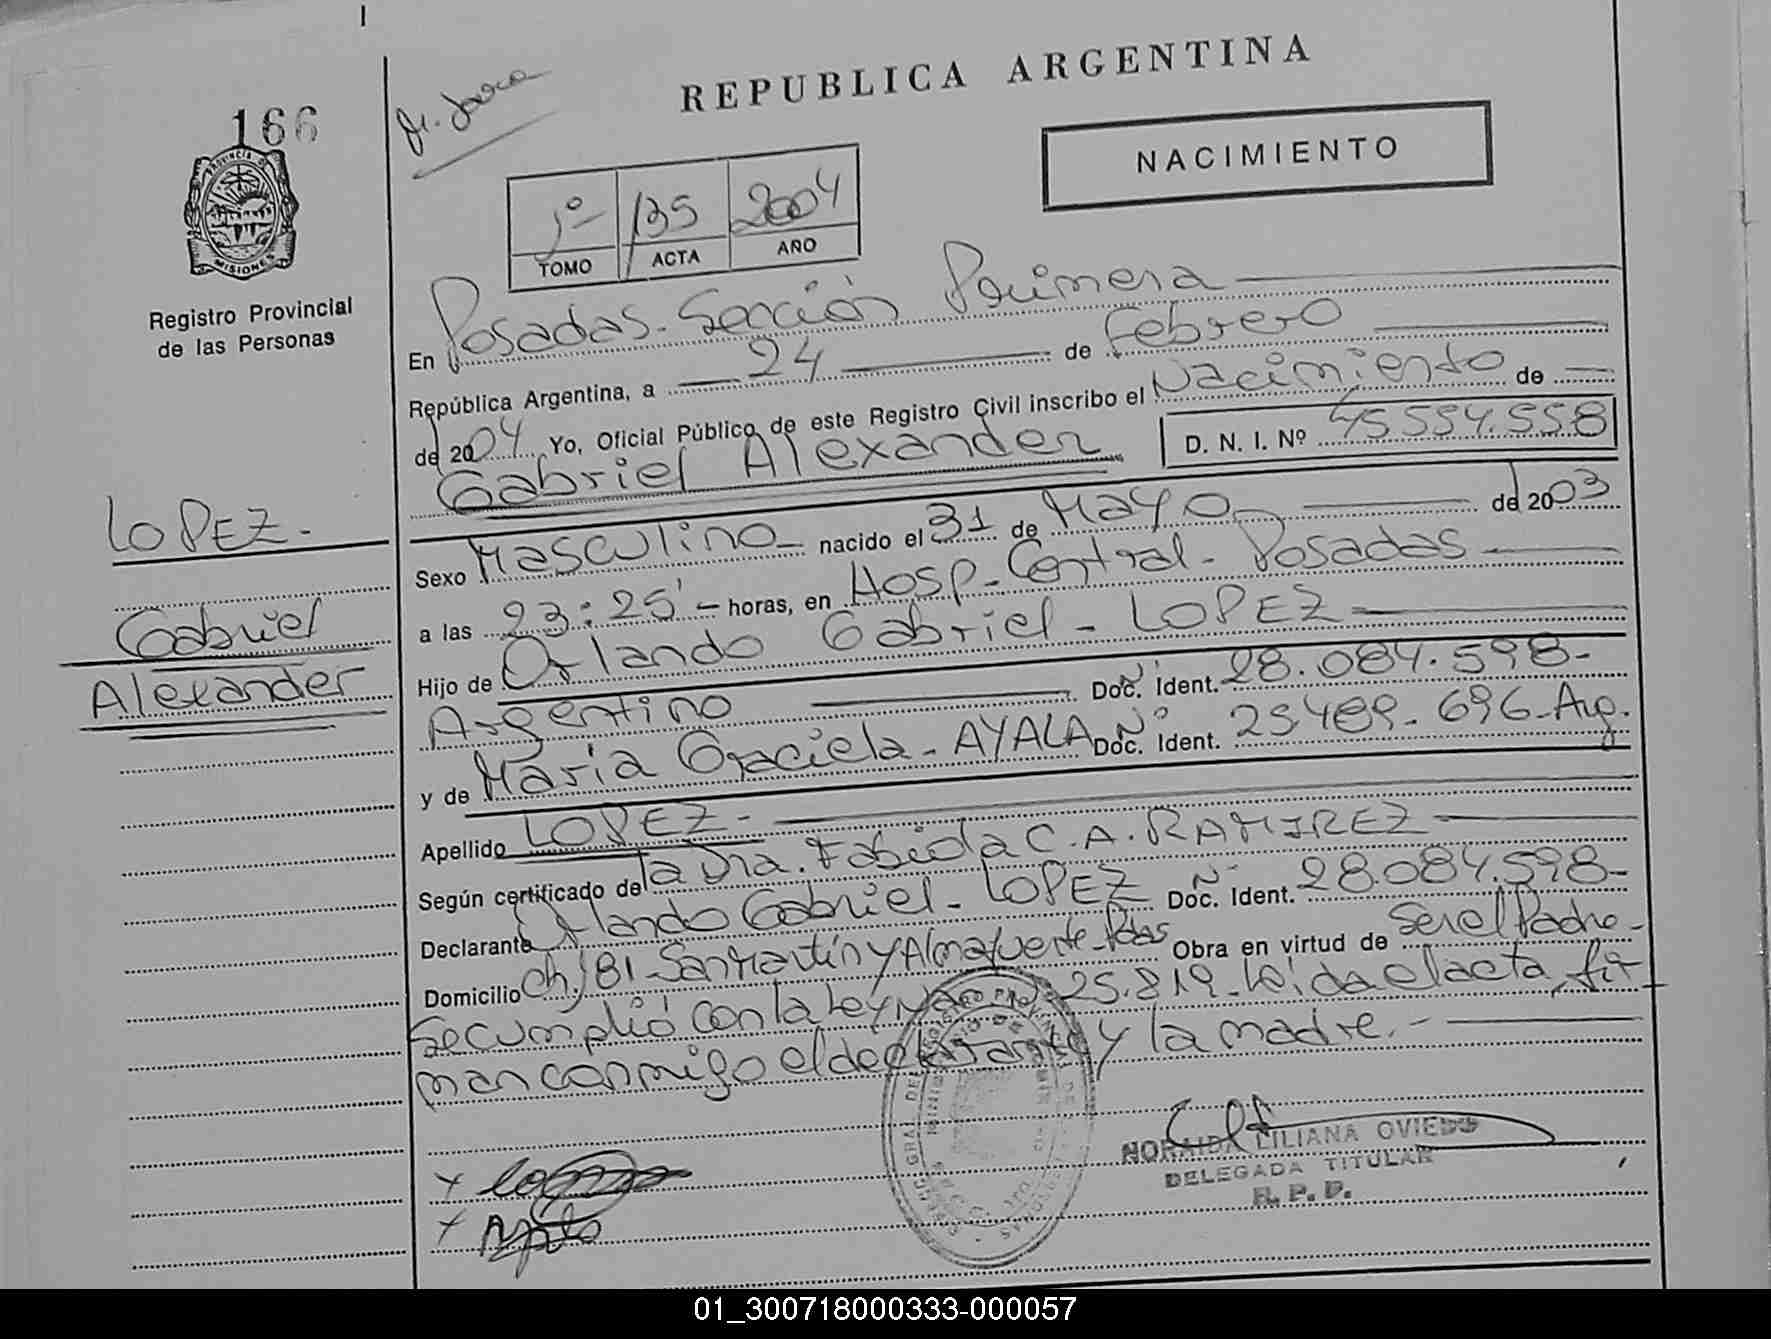 REPUBLICA ARGENTINA
166
NACIMIENTO
1º 135 2004
TOMO ACTA AÑO
PROVINCIA DE
MISIONES
Registro Provincial
de las Personas
En Posadas - Sección Primera
República Argentina, a 24 de Febrero
de 2004. Yo, Oficial Público de este Registro Civil inscribo el Nacimiento de
Gabriel Alexander D. N. I. Nº 45 554.558
LOPEZ.-
Gabriel
Alexander
Sexo Masculino - nacido el 31 de Mayo de 2003
a las 23:25' - horas, en Hosp - Central - Posadas
Hijo de Orlando Gabriel - LOPEZ
Argentino Nº Doc. Ident. 28.084.598-
y de Maria Graciela - AYALA Nº Doc. Ident. 25.489-696-Arg.
Apellido LOPEZ -
Según certificado de la Dra. Fabiola C. A. RAMIREZ
Declarante Orlando Gabriel - LOPEZ Nº Doc. Ident. 28.084.598-
Domicilio Ch/81 - San Martín y Almafuerte - Pdas Obra en virtud de Ser el Padre -
Se cumplió con la Ley Nac. 25.819 - Leída el acta, fir-
man conmigo el declarante y la madre. -
NORAIDA LILIANA OVIEDO
DELEGADA TITULAR
R. P. P.
01_300718000333-000057